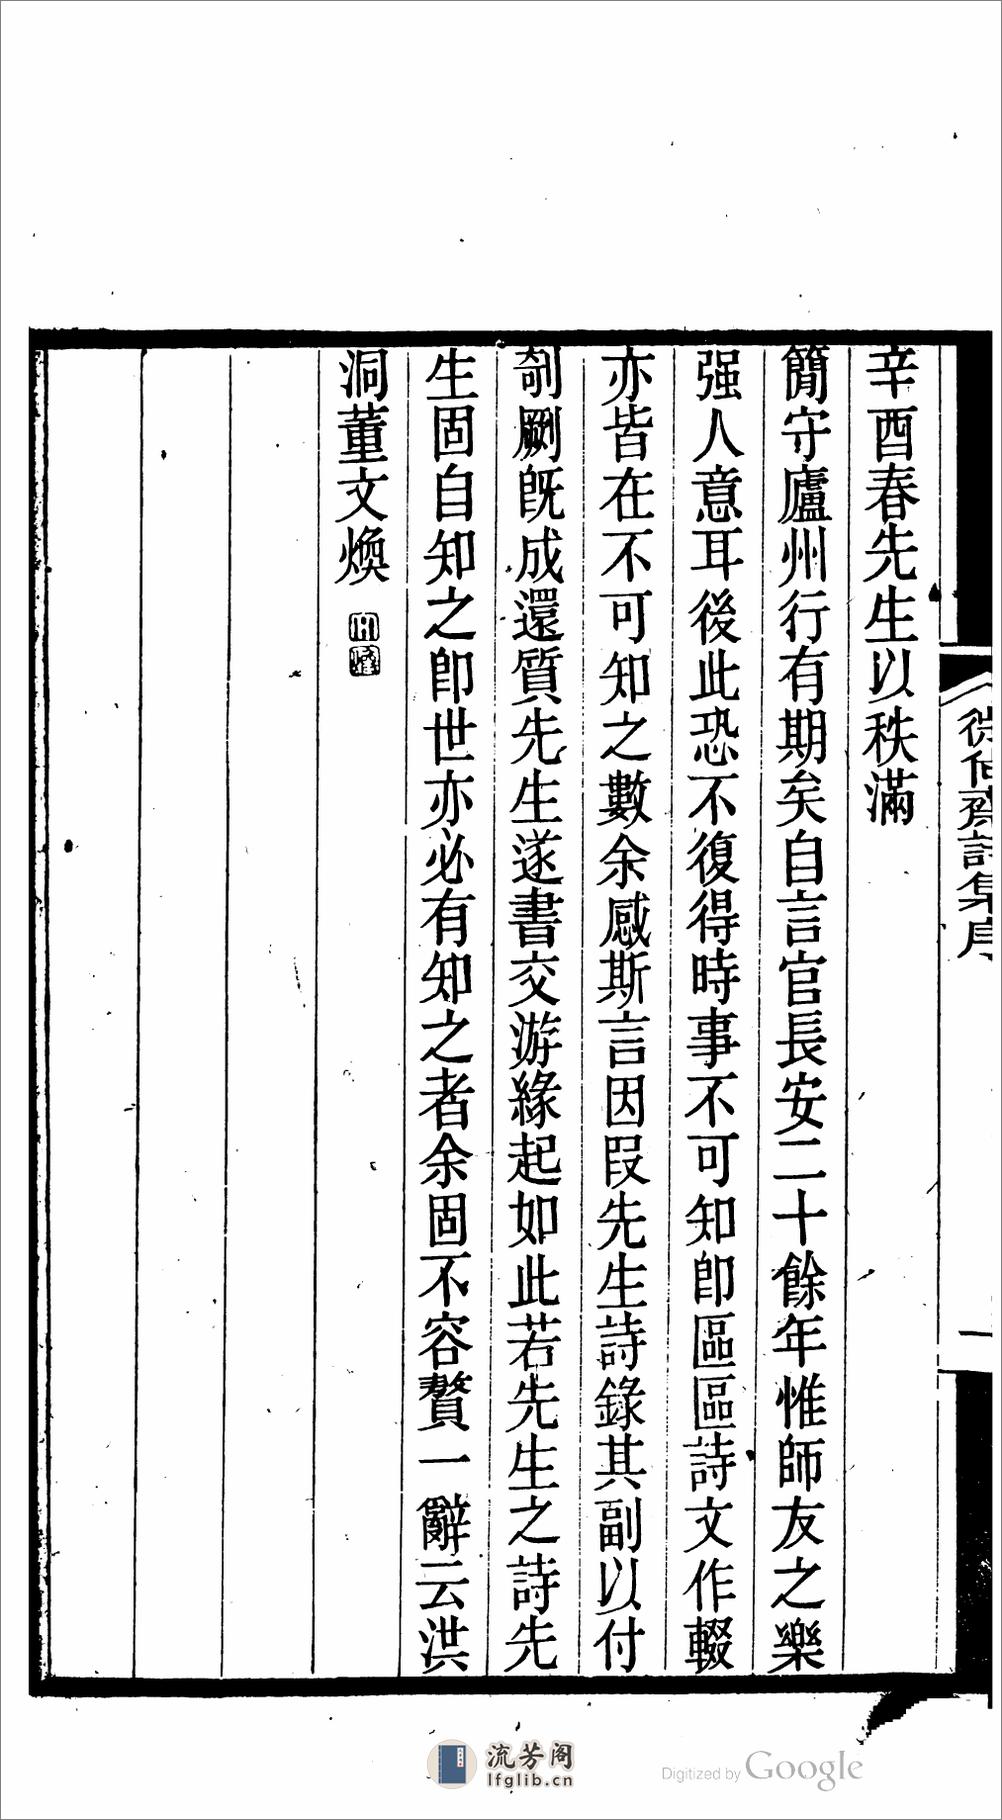 辛酉春先生以秩滿
簡守廬州行有期矣自言官長安二十餘年惟師友之樂
强人意耳後此恐不復得時事不可知卽區區詩文作輟
亦皆在不可知之數余感斯言因叚先生詩錄其副以付
剞劂旣成還質先生遂書交游緣起如此若先生之詩先
生固自知之卽世亦必有知之者余固不容贅一辭云洪
洞董文煥
詩集序
一
流芳阁
lfglib.cn
Digitized by Google